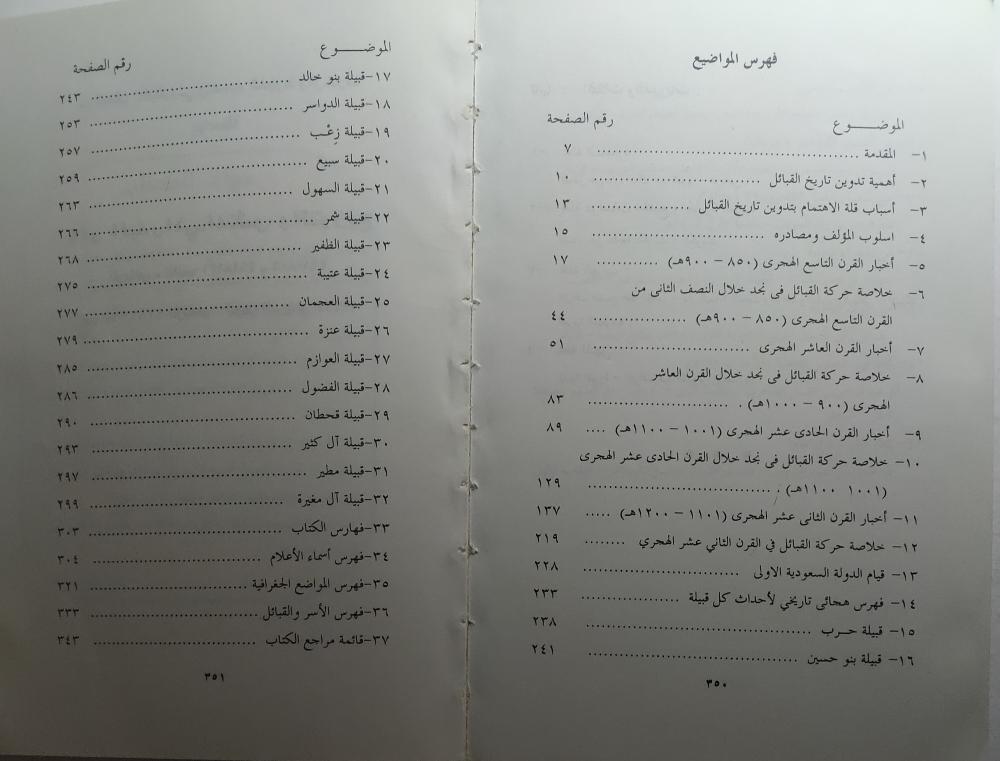 فهرس المواضيع
الموضـــوع رقم الصفحة
١- المقدمة ............ ٧
٢- أهمية تدوين تاريخ القبائل ............ ١٠
٣- أسباب قلة الاهتمام بتدوين تاريخ القبائل ............ ١٣
٤- اسلوب المؤلف ومصادره ............ ١٥
٥- أخبار القرن التاسع الهجرى (٨٥٠ – ٩٠٠هـ) ............ ١٧
٦- خلاصة حركة القبائل فى نجد خلال النصف الثانى من
القرن التاسع الهجرى (٨٥٠ – ٩٠٠هـ) ............ ٤٤
٧- أخبار القرن العاشر الهجرى ............ ٥١
٨- خلاصة حركة القبائل فى نجد خلال القرن العاشر
الهجرى (٩٠٠ – ١٠٠٠هـ) ............ ٨٣
٩- أخبار القرن الحادى عشر الهجرى (١٠٠١ – ١١٠٠هـ) .... ٨٩
١٠- خلاصة حركة القبائل فى نجد خلال القرن الحادى عشر الهجرى
(١٠٠١ ١١٠٠هـ) ............ ١٢٩
١١- أخبار القرن الثانى عشر الهجرى (١١٠١ – ١٢٠٠هـ) ..... ١٣٧
١٢- خلاصة حركة القبائل في القرن الثاني عشر الهجري ........ ٢١٩
١٣- قيام الدولة السعودية الاولى ............ ٢٢٨
١٤- فهرس هجائى تاريخي لأحداث كل قبيلة ............ ٢٣٣
١٥- قبيلة حرب ............ ٢٣٨
١٦- قبيلة بنو حسين ............ ٢٤١
٣٥٠
الموضـــوع رقم الصفحة
١٧-قبيلة بنو خالد ............ ٢٤٣
١٨-قبيلة الدواسر ............ ٢٥٣
١٩-قبيلة زِعْب ............ ٢٥٧
٢٠-قبيلة سبيع ............ ٢٥٩
٢١-قبيلة السهول ............ ٢٦٣
٢٢-قبيلة شمر ............ ٢٦٦
٢٣-قبيلة الظفير ............ ٢٦٨
٢٤-قبيلة عتيبة ............ ٢٧٥
٢٥-قبيلة العجمان ............ ٢٧٧
٢٦-قبيلة عنزة ............ ٢٧٩
٢٧-قبيلة العوازم ............ ٢٨٥
٢٨-قبيلة الفضول ............ ٢٨٦
٢٩-قبيلة قحطان ............ ٢٩٠
٣٠-قبيلة آل كثير ............ ٢٩٣
٣١-قبيلة مطير ............ ٢٩٧
٣٢-قبيلة آل مغيرة ............ ٢٩٩
٣٣-فهارس الكتاب ............ ٣٠٣
٣٤-فهرس أسماء الأعلام ............ ٣٠٤
٣٥-فهرس المواضع الجغرافية ............ ٣٢١
٣٦-فهرس الأسر والقبائل ............ ٣٣٣
٣٧-قائمة مراجع الكتاب ............ ٣٤٣
٣٥١